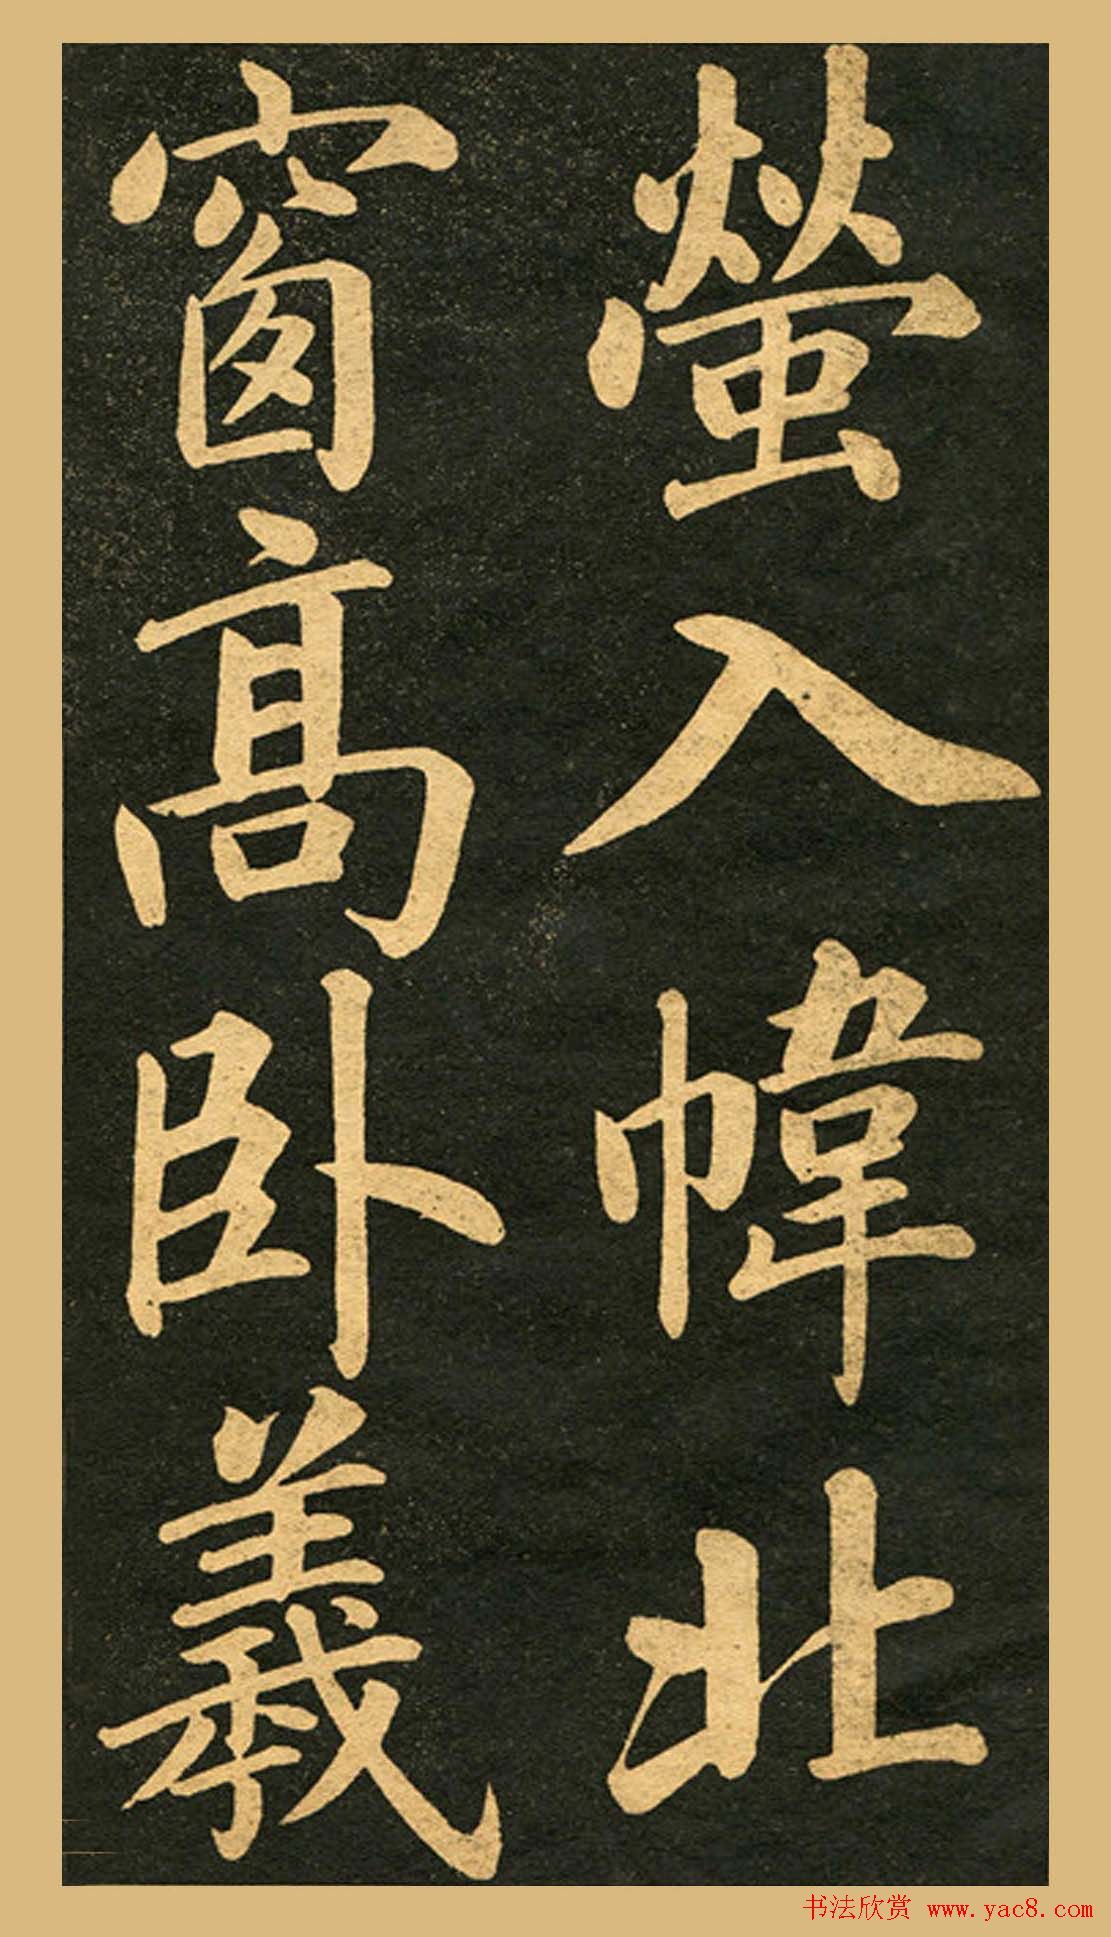 螢入幃北
窗高卧羲
书法欣赏 www.yac8.com